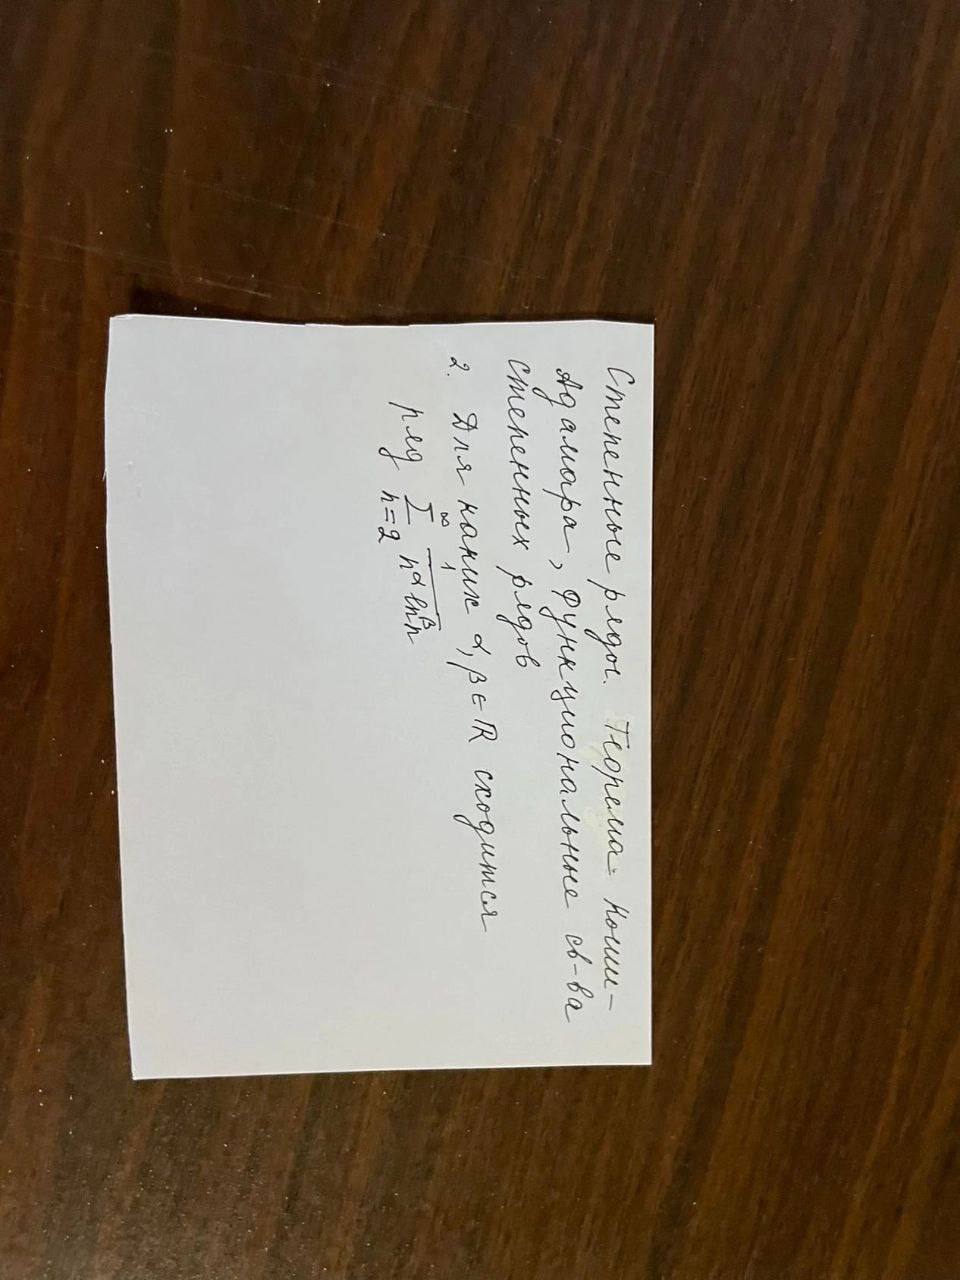 Степенные ряды. Теорема Коши-
Адамара, функциональные св-ва
степенных рядов
2. Для каких α, β ∈ ℝ сходится
ряд ∑_{n=2}^{∞} 1/(n^α ln^β n)